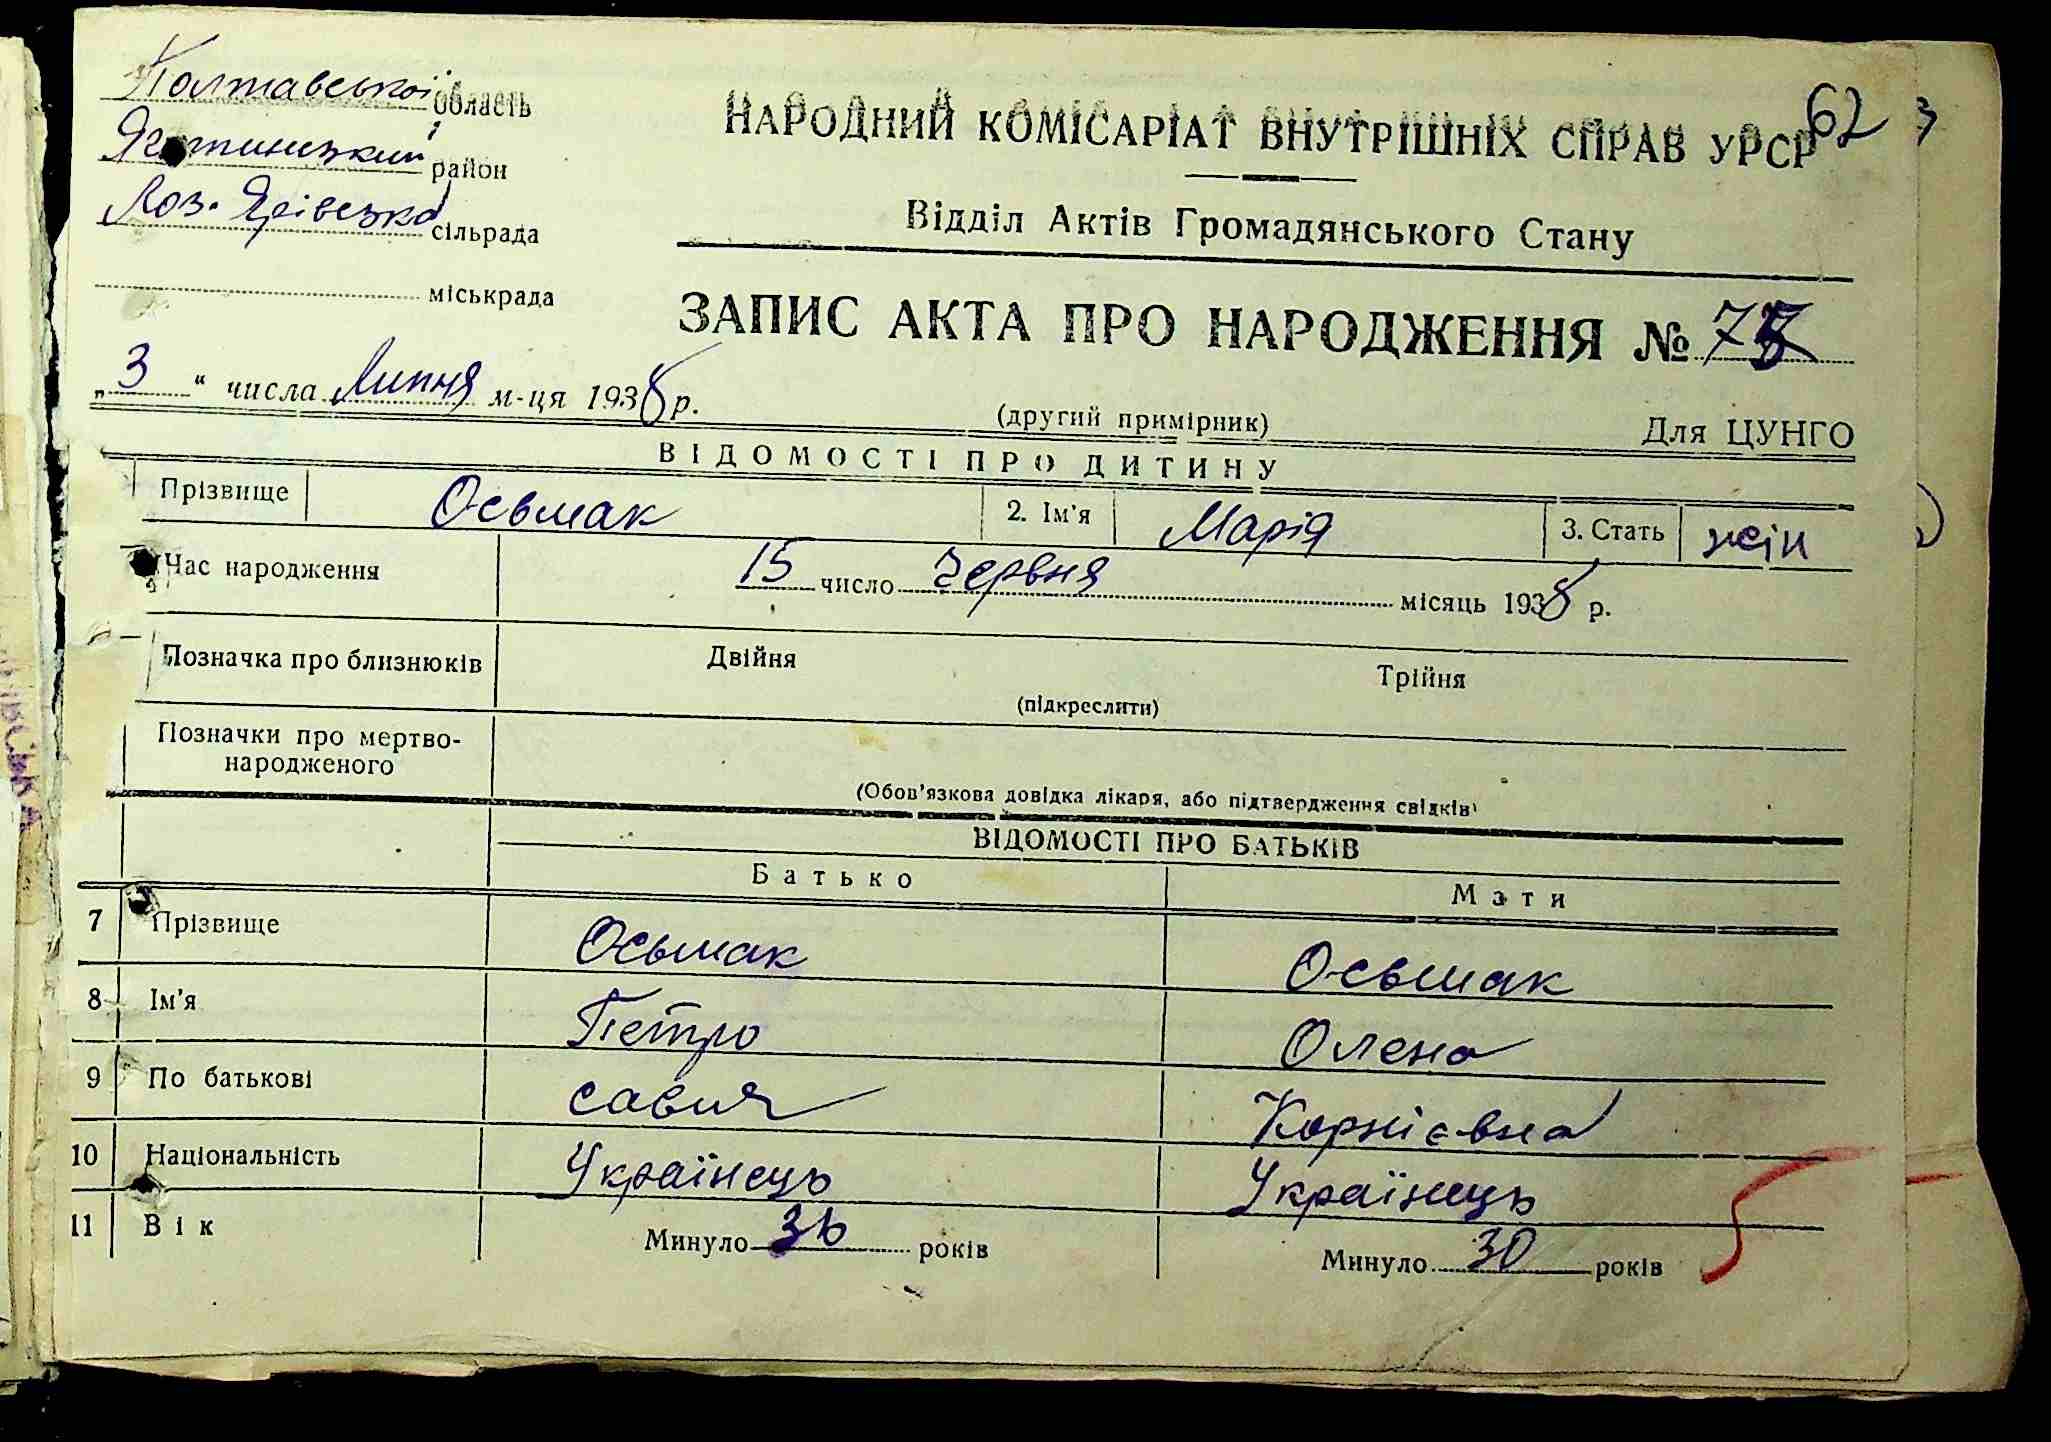 Полтавської область
Яготинський район
Лоз. Ярівська сільрада
міськрада
62
НАРОДНИЙ КОМІСАРІАТ ВНУТРІШНІХ СПРАВ УРСР
Відділ Актів Громадянського Стану
ЗАПИС АКТА ПРО НАРОДЖЕННЯ №
„3“ числа Липня м-ця 1938 р.
(другий примірник)
Для ЦУНГО
ВІДОМОСТІ ПРО ДИТИНУ
Прізвище Осьмак 2. Ім'я Марія 3. Стать жін
Час народження 15 число Червня місяць 1938 р.
Позначка про близнюків Двійня Трійня
(підкреслити)
Позначки про мертво-
народженого
(Обов'язкова довідка лікаря, або підтвердження свідків)
ВІДОМОСТІ ПРО БАТЬКІВ
Батько Мати
7 Прізвище Осьмак Осьмак
8 Ім'я Петро Олена
9 По батькові Корнієвна
10 Національність Українець Українець
11 Вік Минуло 36 років Минуло 30 років